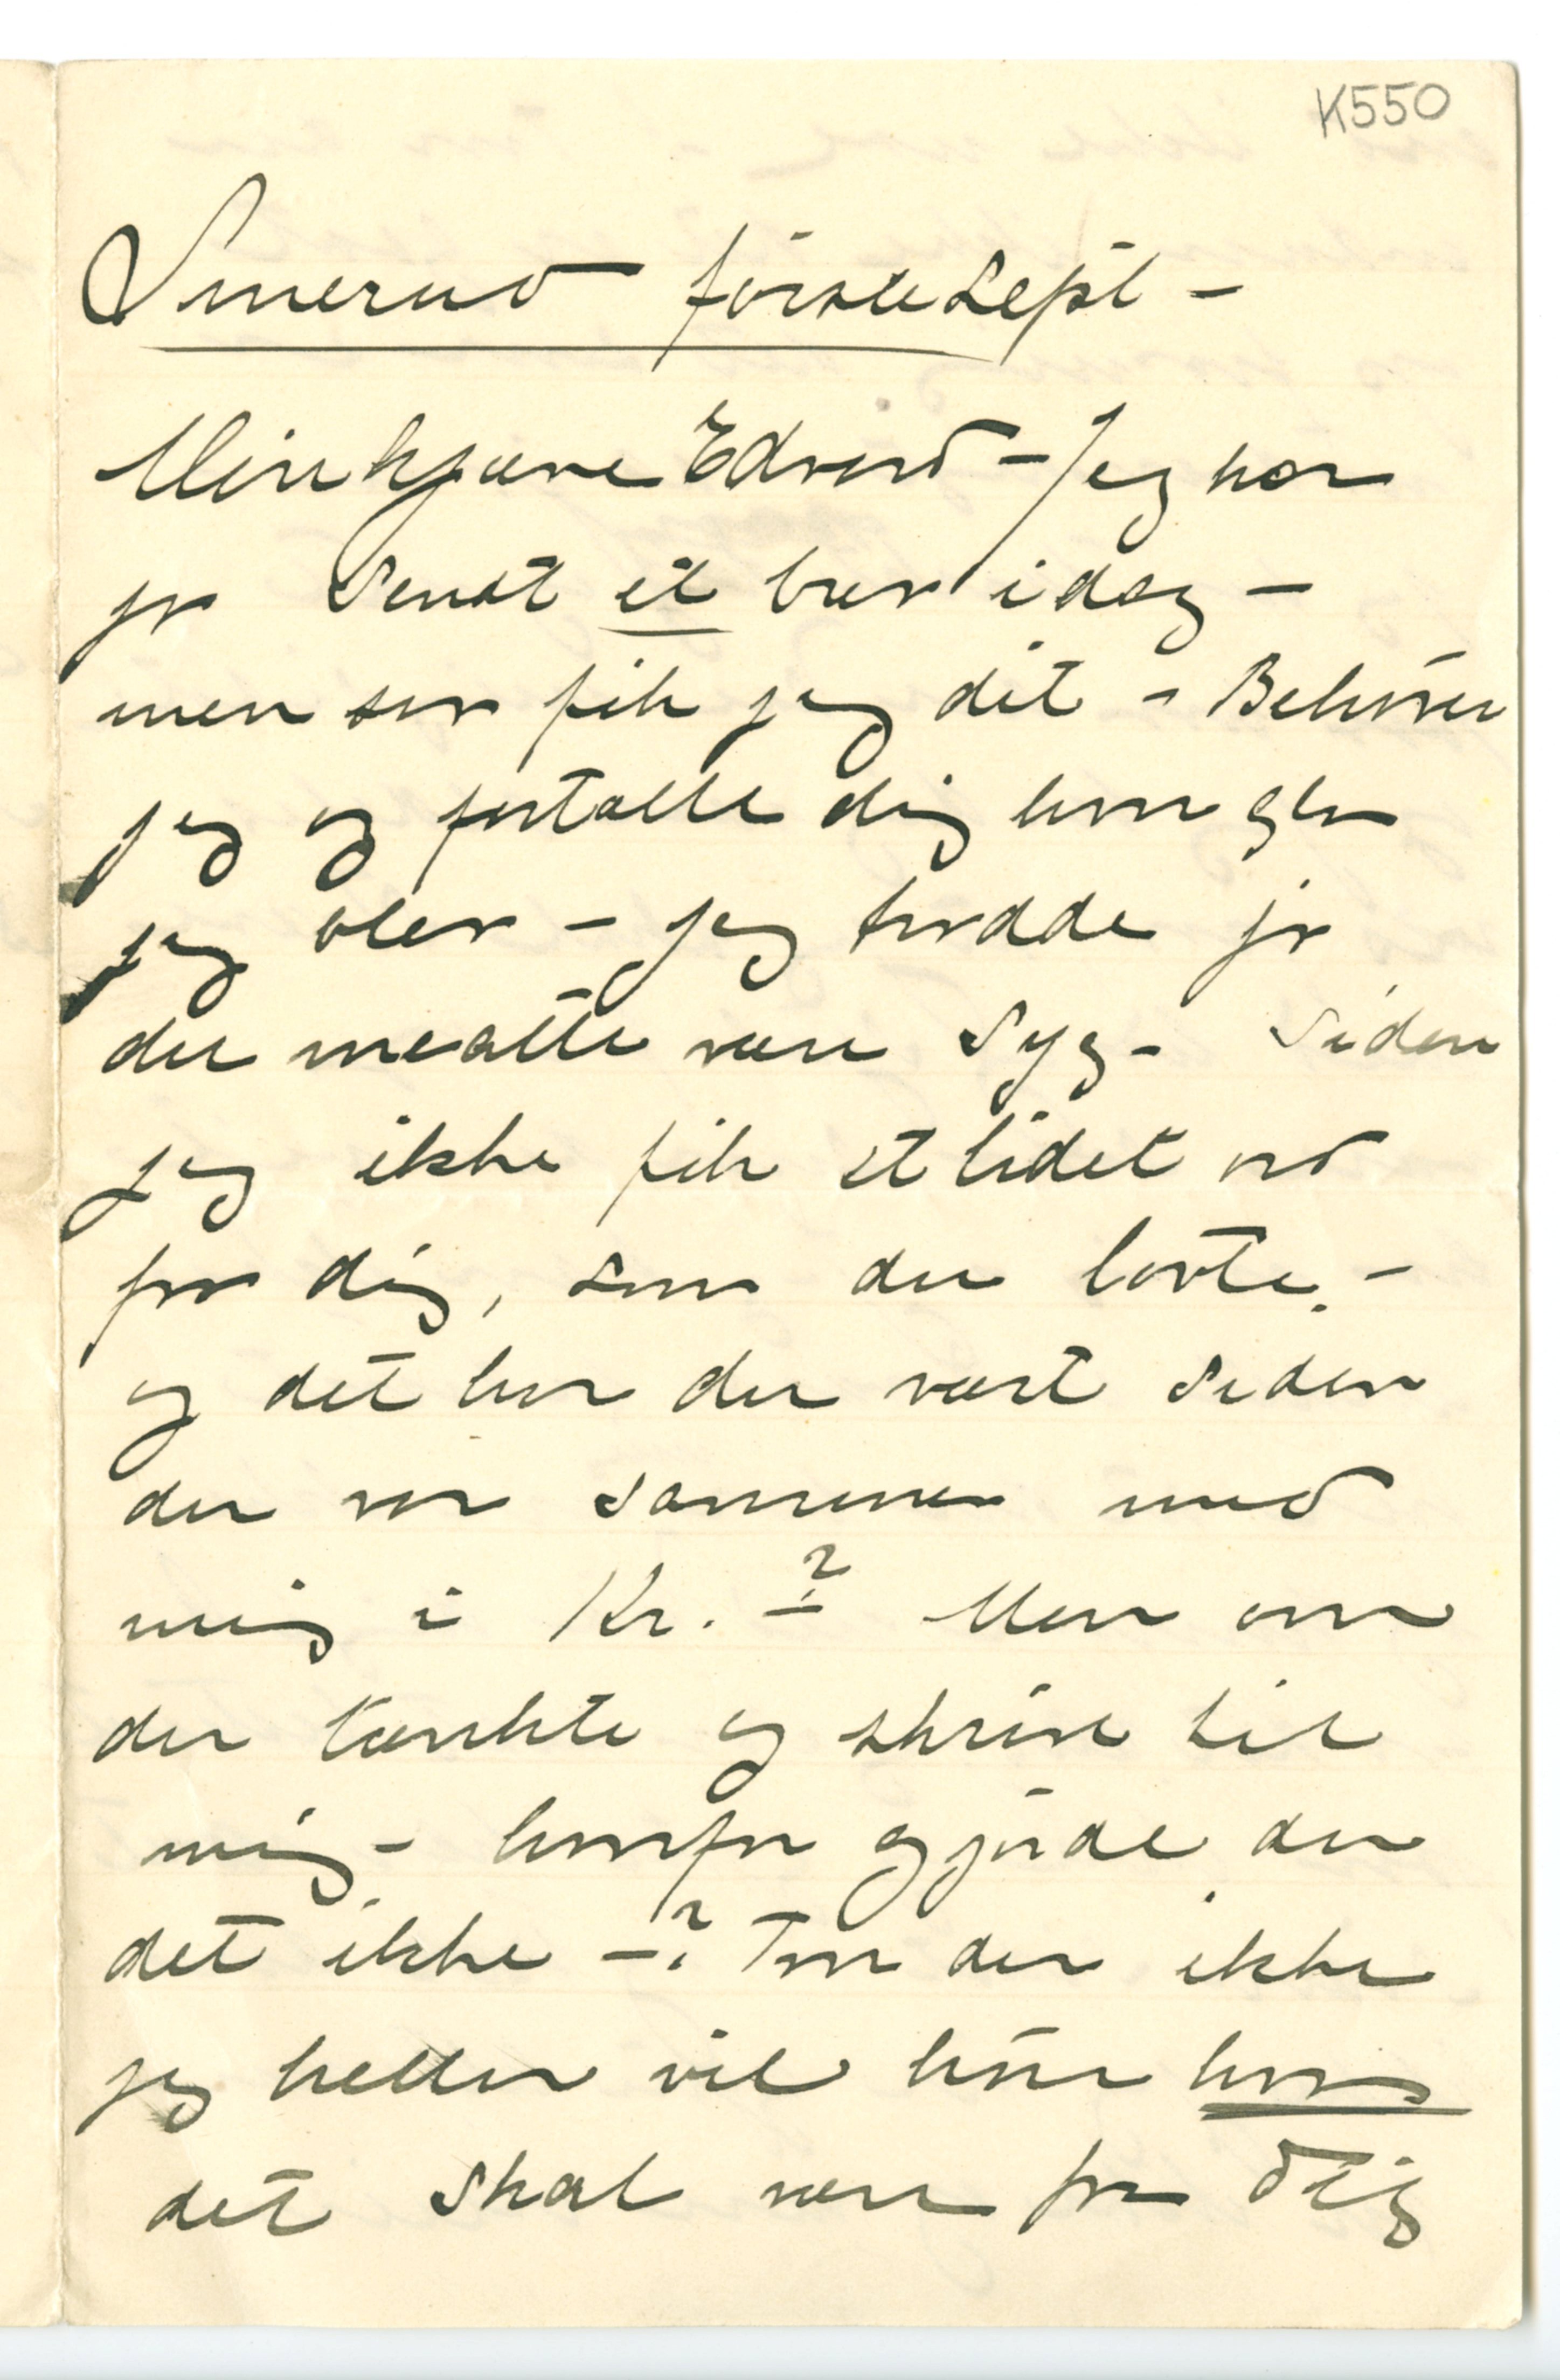 K550
Smerud første Sept –
Min kjære Edvard – Jeg har
jo sendt et brev idag –
men saa fik jeg dit – Behøver
jeg og fortælle dig hvor gla
jeg blev – jeg trodde jo
du maatte være syg – siden
jeg ikke fik et lidet ord
fra dig, som du lovte. –
og det har du vært siden
du var sammen med
mig i Kr. –? Men om
du tænkte og skrive til
mig – hvorfor gjørde du
det ikke –? Tror du ikke
jeg heller vil høre hvad
det skal være fra dig